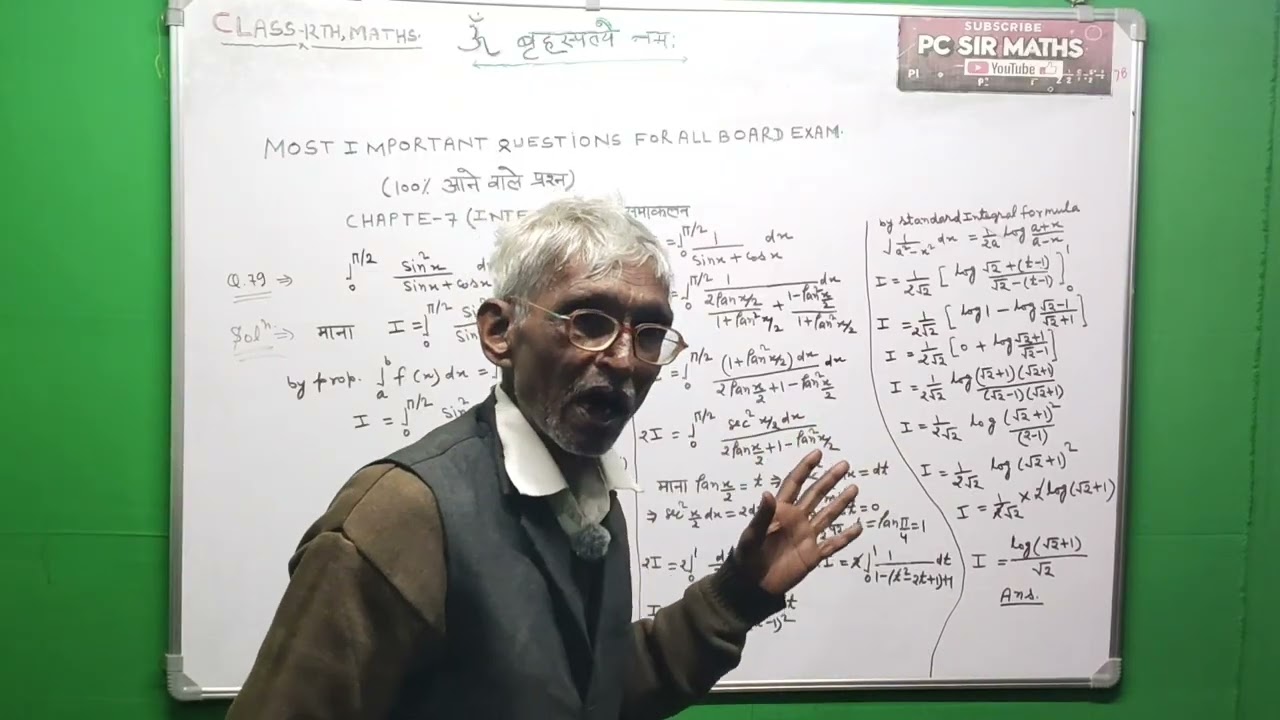 CLASS-12TH, MATHS.
ॐ बृहस्पतये नमः
SUBSCRIBE
PC SIR MATHS
YouTube
MOST IMPORTANT QUESTIONS FOR ALL BOARD EXAM.
(100% आने वाले प्रश्न)
CHAPTE-7 (INTE समाकलन
Q.79 ⇒ ∫₀^π/2 sin²x / sinx + cosx
Solⁿ ⇒ माना I = ∫₀^π/2
by prop. ∫ₐᵇ f(x) dx =
I = ∫₀^π/2 sin²
= ∫₀^π/2 1 / sinx + cosx dx
∫₀^π/2 1 / (2tan x/2 / 1+tan² x/2 + 1-tan² x/2 / 1+tan² x/2) dx
∫₀^π/2 (1+tan² x/2) dx / 2tan x/2 + 1 - tan² x/2 dx
2I = ∫₀^π/2 sec² x/2 dx / 2tan x/2 + 1 - tan² x/2
माना tan x/2 = t ⇒ = dt
⇒ sec² x/2 dx = 2d t = 0
= tan π/4 = 1
2I = 2∫₀¹ I = 2∫₀¹ 1 / 1-(t²-2t+1)+1 dt
by standard Integral formula
∫ 1 / a²-x² dx = 1/2a log a+x / a-x
I = 1/2√2 [log √2+(t-1) / √2-(t-1)]₀¹
I = 1/2√2 [log1 - log √2-1 / √2+1]
I = 1/2√2 [0 + log √2+1 / √2-1]
I = 1/2√2 log (√2+1)(√2+1) / (√2-1)(√2+1)
I = 1/2√2 log (√2+1)² / (2-1)
I = 1/2√2 log (√2+1)²
I = 1/2√2 × 2 log(√2+1)
I = log(√2+1) / √2
Ans.